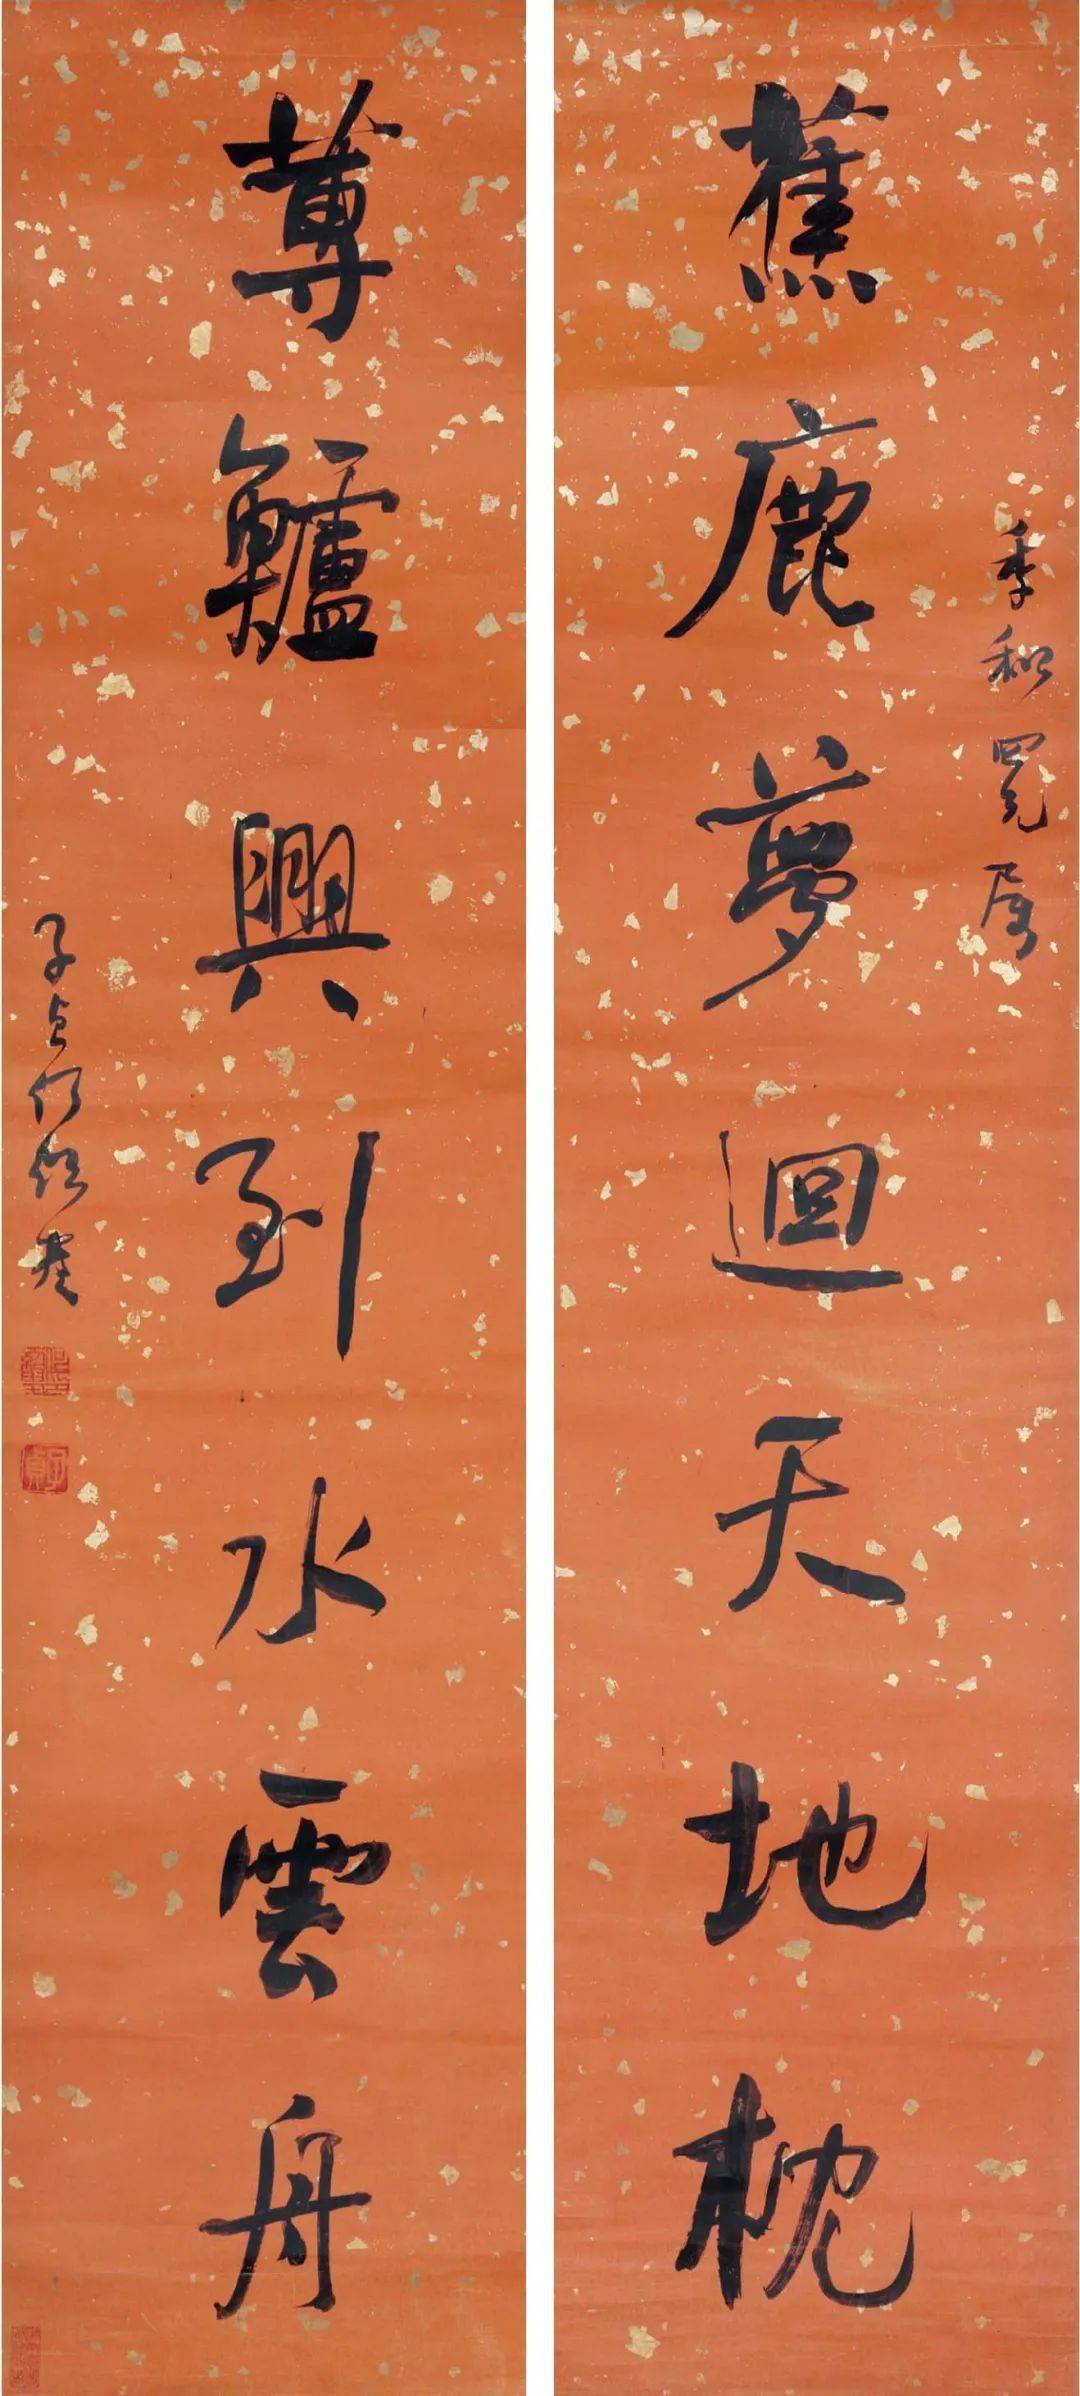 蕉鹿夢迴天地枕
季和四兄属
蓴鱸興到水雲舟
子貞何紹基
子貞